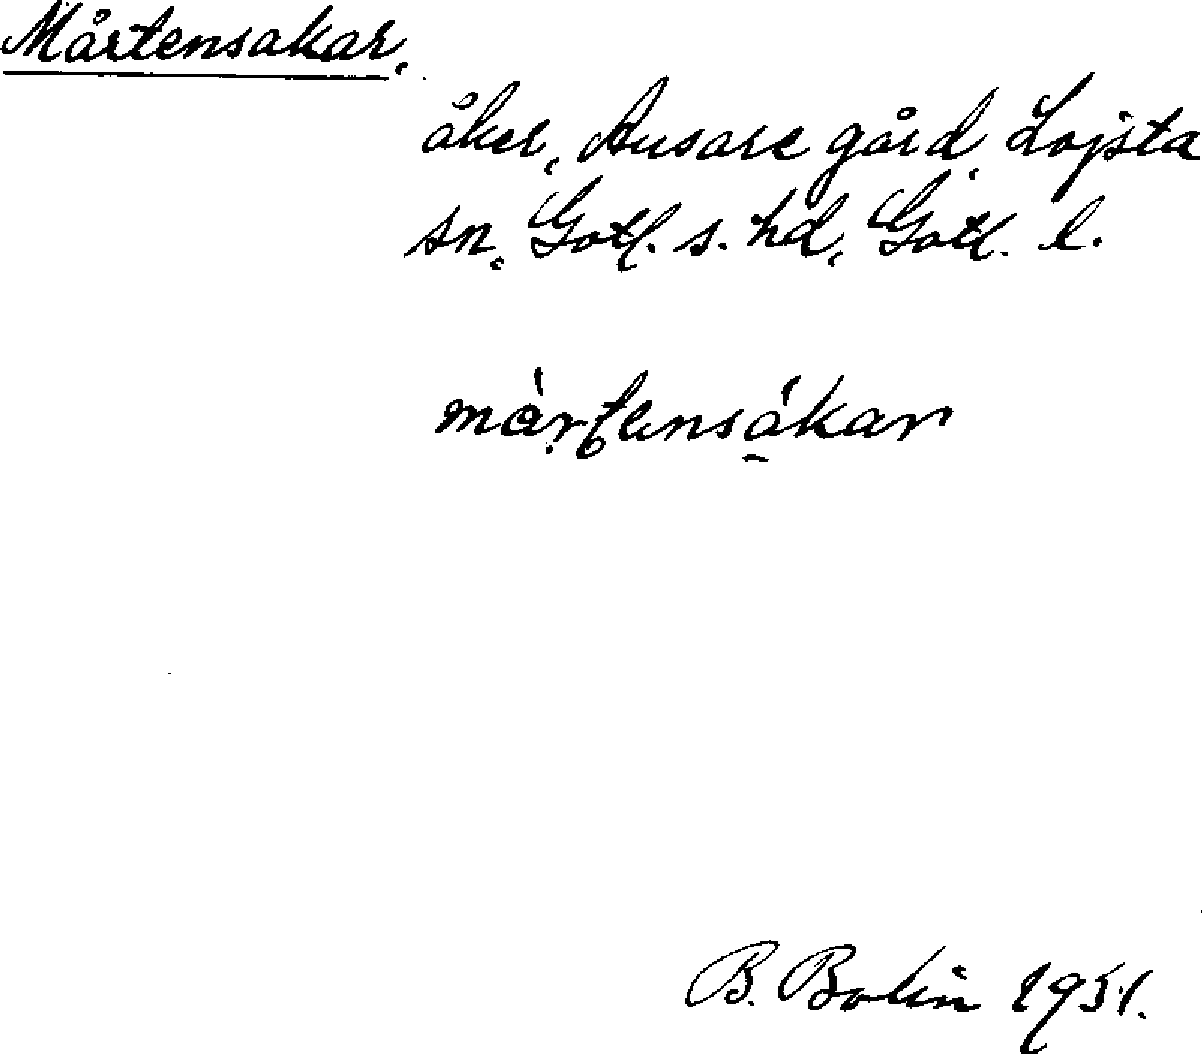 Mårtensakar,
åker, Ausare gård, Lojsta
sn, Gotl. s. hd, Gotl. l.
màrtensákar
B. Bolin 1951.